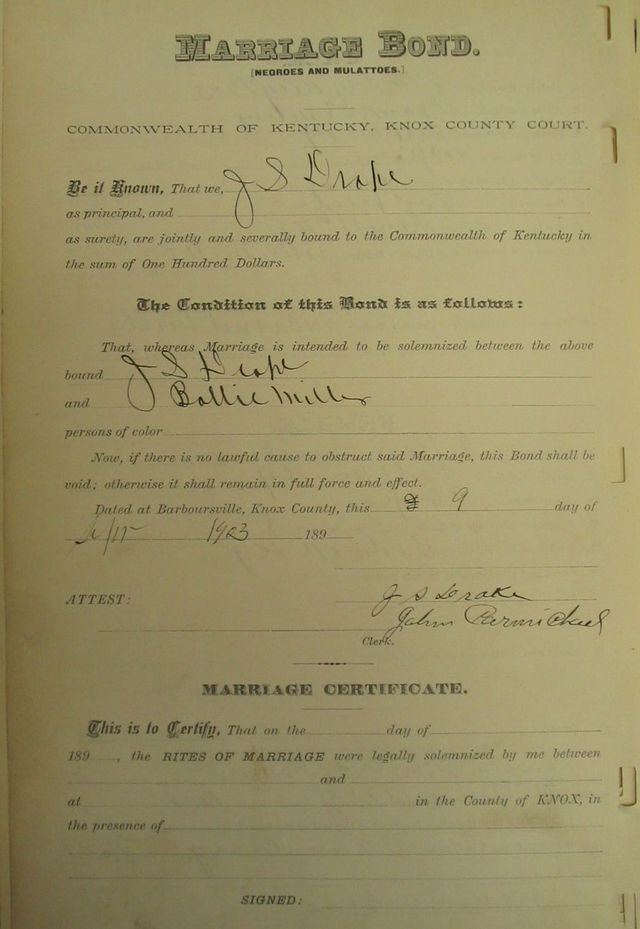 MARRIAGE BOND.
[NEGROES AND MULATTOES.]
COMMONWEALTH OF KENTUCKY, KNOX COUNTY COURT.
Be it Known, That we, J S Drake
as principal, and
as surety, are jointly and severally bound to the Commonwealth of Kentucky in
the sum of One Hundred Dollars.
The Condition of this Bond is as follows:
That, whereas Marriage is intended to be solemnized between the above
bound J S Drake
and Bollie Miller
persons of color
Now, if there is no lawful cause to obstruct said Marriage, this Bond shall be
void; otherwise it shall remain in full force and effect.
Dated at Barboursville, Knox County, this 9 day of
1923 189
J S Drake
ATTEST:
John Parmichael
Clerk.
MARRIAGE CERTIFICATE.
This is to Certify, That on the day of
189 , the RITES OF MARRIAGE were legally solemnized by me between
and
at in the County of KNOX, in
the presence of
SIGNED: